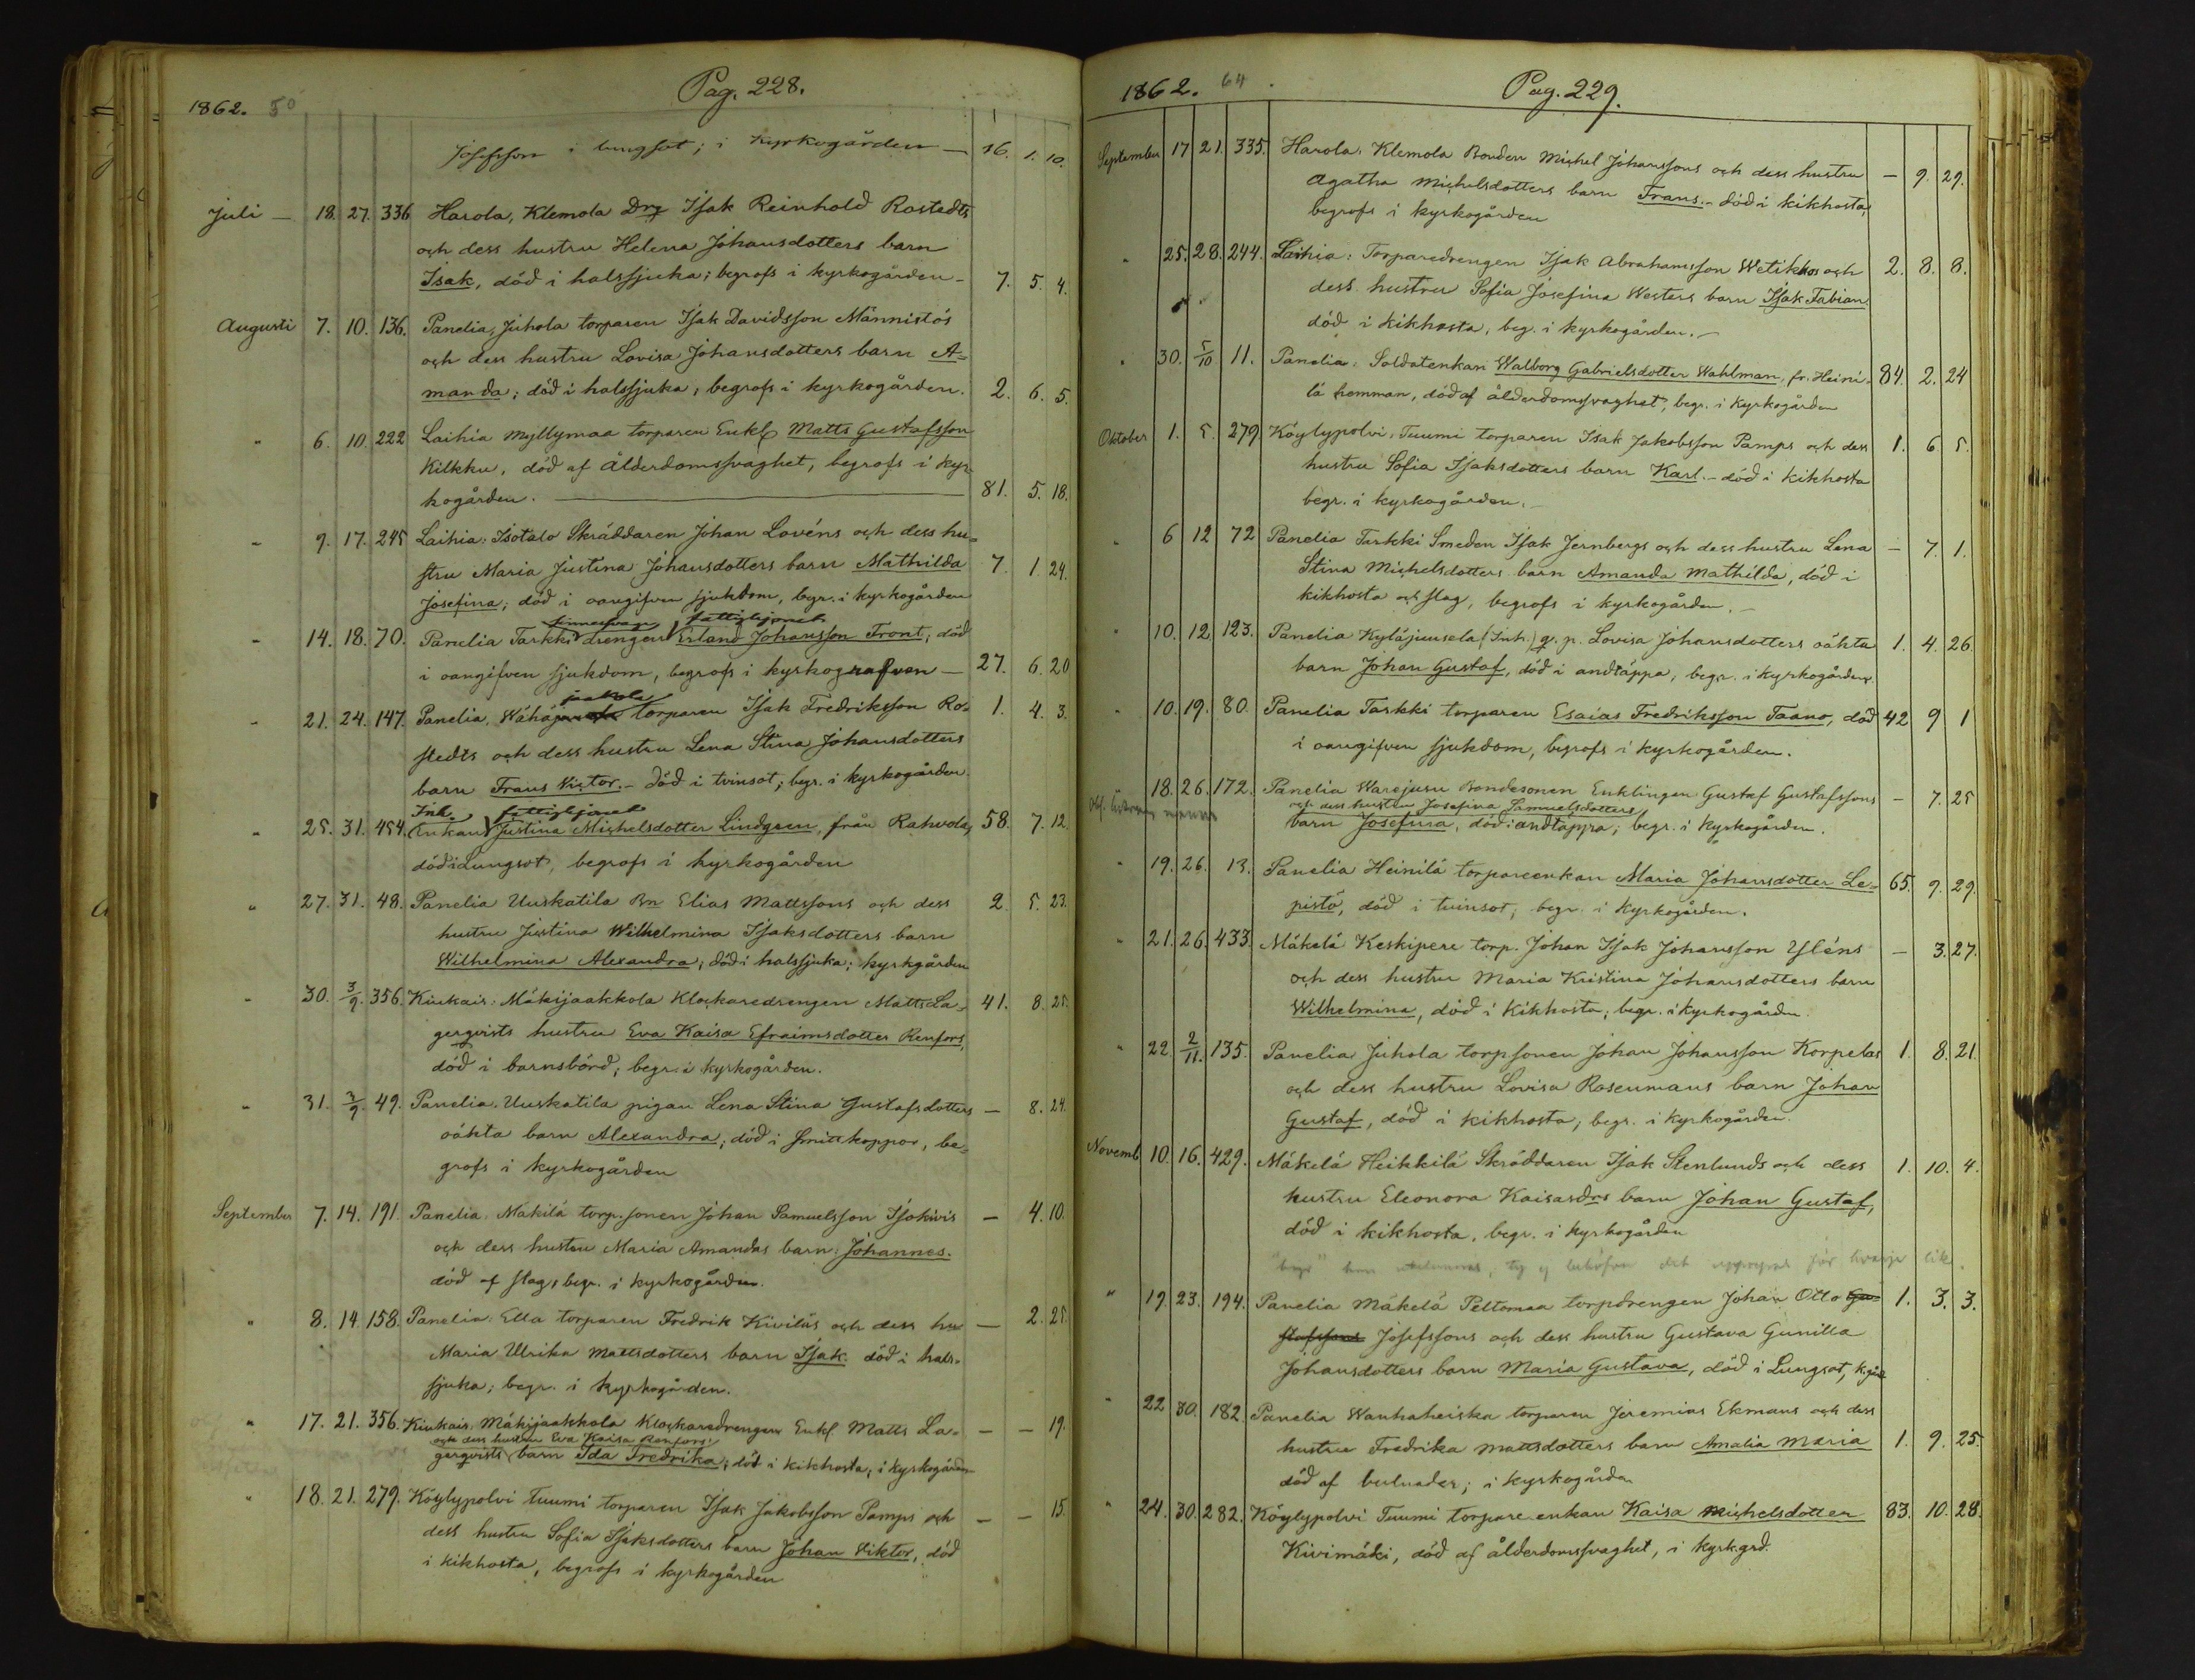 Pag. 228.
1862. 50
Josefsson i lungsot; i kyrkogården — 16. 1. 10.
Juli — 18. 27. 336 Harola, Klemola Drg Isak Reinhold Rostedts
och dess hustru Helena Johansdotters barn
Isak, död i halssjuka; begrofs i kyrkogården - 7. 5. 4.
Augusti 7. 10. 136. Panelia, Juhola torparen Isak Davidsson Männistös
och dess hustru Lovisa Johansdotters barn A=
manda; död i halssjuka, begrofs i kyrkogården. 2. 6. 5.
" 6. 10. 222 Laihia Myllymaa torparen Enkl. Matts Gustafsson
Kilkku, död af ålderdomssvaghet, begrofs i kyr=
kogården. — 81. 5. 18.
" 9. 17. 245 Laihia: Isotalo Skräddaren Johan Lovéns och dess hu=
stru Maria Justina Johansdotters barn Mathilda 7. 1. 24.
Josefina; död i oangifven sjukdom, begr. i kyrkogården
sinnessvage fattighjonet
" 14. 18. 70. Panelia Tarkki drengen Erland Johansson Front; död
i oangifven sjukdom, begrofs i kyrkografven — 27. 6. 20
jaakola
" 21. 24. 147. Panelia, Wähä torparen Isak Fredriksson Ro= 1. 4. 3.
stedts och dess hustru Lena Stina Johansdotters
barn Frans Victor. - död i tvinsot; begr. i kyrkogården.
Inh. fattighjonet
" 25. 31. 454. Enkan Justina Michelsdotter Lindgren, från Rahvola, 58. 7. 12.
död i Lungsot, begrofs i kyrkogården
" 27. 31. 48. Panelia Uuskatila Bn Elias Mattssons och dess 2. 5. 23.
hustru Justina Wilhelmina Isaksdotters barn
Wilhelmina Alexandra; död i halssjuka; kyrkgården
" 30. 3/9. 356. Kiukais: Mäkijaakkola Klockaredrengen Matts La= 41. 8. 25.
gerqvists hustru Eva Kaisa Efraimsdotter Renfors,
död i barnsbörd; begr. i kyrkogården.
" 31. 3/9. 49. Panelia. Uuskatila pigan Lena Stina Gustafsdotters — 8. 24.
oäkta barn Alexandra; död i Smittkoppor, be=
grofs i kyrkogården
September 7. 14. 191. Panelia. Mäkilä torp. sonen Johan Samuelsson Isokivis — 4. 10.
och dess hustru Maria Amandas barn: Johannes.
död af slag; begr. i kyrkogården.
" 8. 14. 158. Panelia: Ella torparen Fredrik Kiviläs och dess hu — 2. 25.
Maria Ulrika Mattsdotters barn Isak. död i hals=
sjuka; begr. i kyrkogården.
" 17. 21. 356. Kiukais, Mäkijaakkola Klockaredrengen Enkl. Matts La= — — 19.
och dess hustru Eva Kaisa Renfors'
gerqvists barn Ida Fredrika; död i kikhosta; i kyrkogården
" 18. 21. 279. Köylypolvi Tuumi torparen Isak Jakobsson Pamps och — — 15.
dess hustru Sofia Isaksdotters barn Johan Viktor, död
i kikhosta, begrofs i kyrkogården
1862. 64
Pag. 229.
September 17 21. 335. Harola: Klemola Bonden Michel Johanssons och dess hustru — 9. 29.
Agatha Michelsdotters barn Frans. - död i kikhosta;
begrofs i kyrkogården
" 25. 28. 244. Laihia: Torparedrengen Isak Abrahamsson Wetikkos och 2. 8. 8.
dess hustru Sofia Josefina Westers barn Isak Fabian
död i kikhosta, beg. i kyrkogården. -
" 30. 5/10 11. Panelia: Soldatenkan Walborg Gabrielsdotter Wahlman, fr. Heini= 84. 2. 24
lä hemman, död af ålderdomssvaghet, begr. i kyrkogården
Oktober 1. 5. 279 Köylypolvi, Tuumi torparen Isak Jakobsson Pamps och dess 1. 6 5.
hustru Sofia Isaksdotters barn Karl. - död i kikhosta
begr. i kyrkogården. -
" 6 12 72 Panelia Tarkki Smeden Isak Jernbergs och dess hustru Lena — 7. 1.
Stina Michelsdotters barn Amanda Mathilda, död i
kikhosta och slag, begrofs i kyrkogården. -
" 10. 12. 123. Panelia Kyläjuusela (Inh.) q. p. Lovisa Johansdotters oäkta 1. 4. 26.
barn Johan Gustaf, död i andtäppa, begr. i kyrkogården.
" 10. 19. 80. Panelia Tarkki torparen Esaias Fredriksson Taano, död 42 9 1
i oangifven sjukdom, begrofs i kyrkogården.
18. 26. 172. Panelia Warejusu Bondesonen Enklingen Gustaf Gustafssons — 7. 25
och dess hustru Josefina Samuelsdotters
barn Josefina, död i andtäppa; begr. i kyrkogården.
" 19. 26. 13. Panelia Heinilä torpareenkan Maria Johansdotter Le= 65. 9. 29.
pistö, död i tvinsot; begr. i kyrkogården.
" 21. 26. 433. Mäkelä Keskipere torp. Johan Isak Johansson Ysléns — 3. 27.
och dess hustru Maria Kristina Johansdotters barn
Wilhelmina, död i Kikhosta; begr. i kyrkogården.
" 22. 2/11. 135. Panelia Juhola torpsonen Johan Johansson Korpelas 1. 8. 21.
och dess hustru Lovisa Rosenmans barn Johan
Gustaf, död i kikhosta; begr. i kyrkogården.
Novemb. 10. 16. 429. Mäkelä Heikkilä Skräddaren Isak Stenlunds och dess 1. 10. 4.
hustru Eleonora Kaisasdrs barn Johan Gustaf,
död i kikhosta. begr. i kyrkogården
"begr" kan utelemnas, ty ej behöfves det upprepas för hvarje lik.
" 19. 23. 194. Panelia Mäkelä Peltomaa torpdrengen Johan Otto Gu= 1. 3. 3.
stafssons Josefssons och dess hustru Gustava Gunilla
Johansdotters barn Maria Gustava, död i Lungsot, k.gård
" 22 30. 182. Panelia Wanhaheiska torparen Jeremias Ekmans och dess
hustru Fredrika Mattsdotters barn Amalia Maria 1. 9. 25.
död af bulnader; i kyrkogården
" 24. 30. 282. Köylypolvi Tuumi torpare enkan Kaisa Michelsdotter 83. 10. 28.
Kivimäki, död af ålderdomssvaghet, i kyrk.grd.